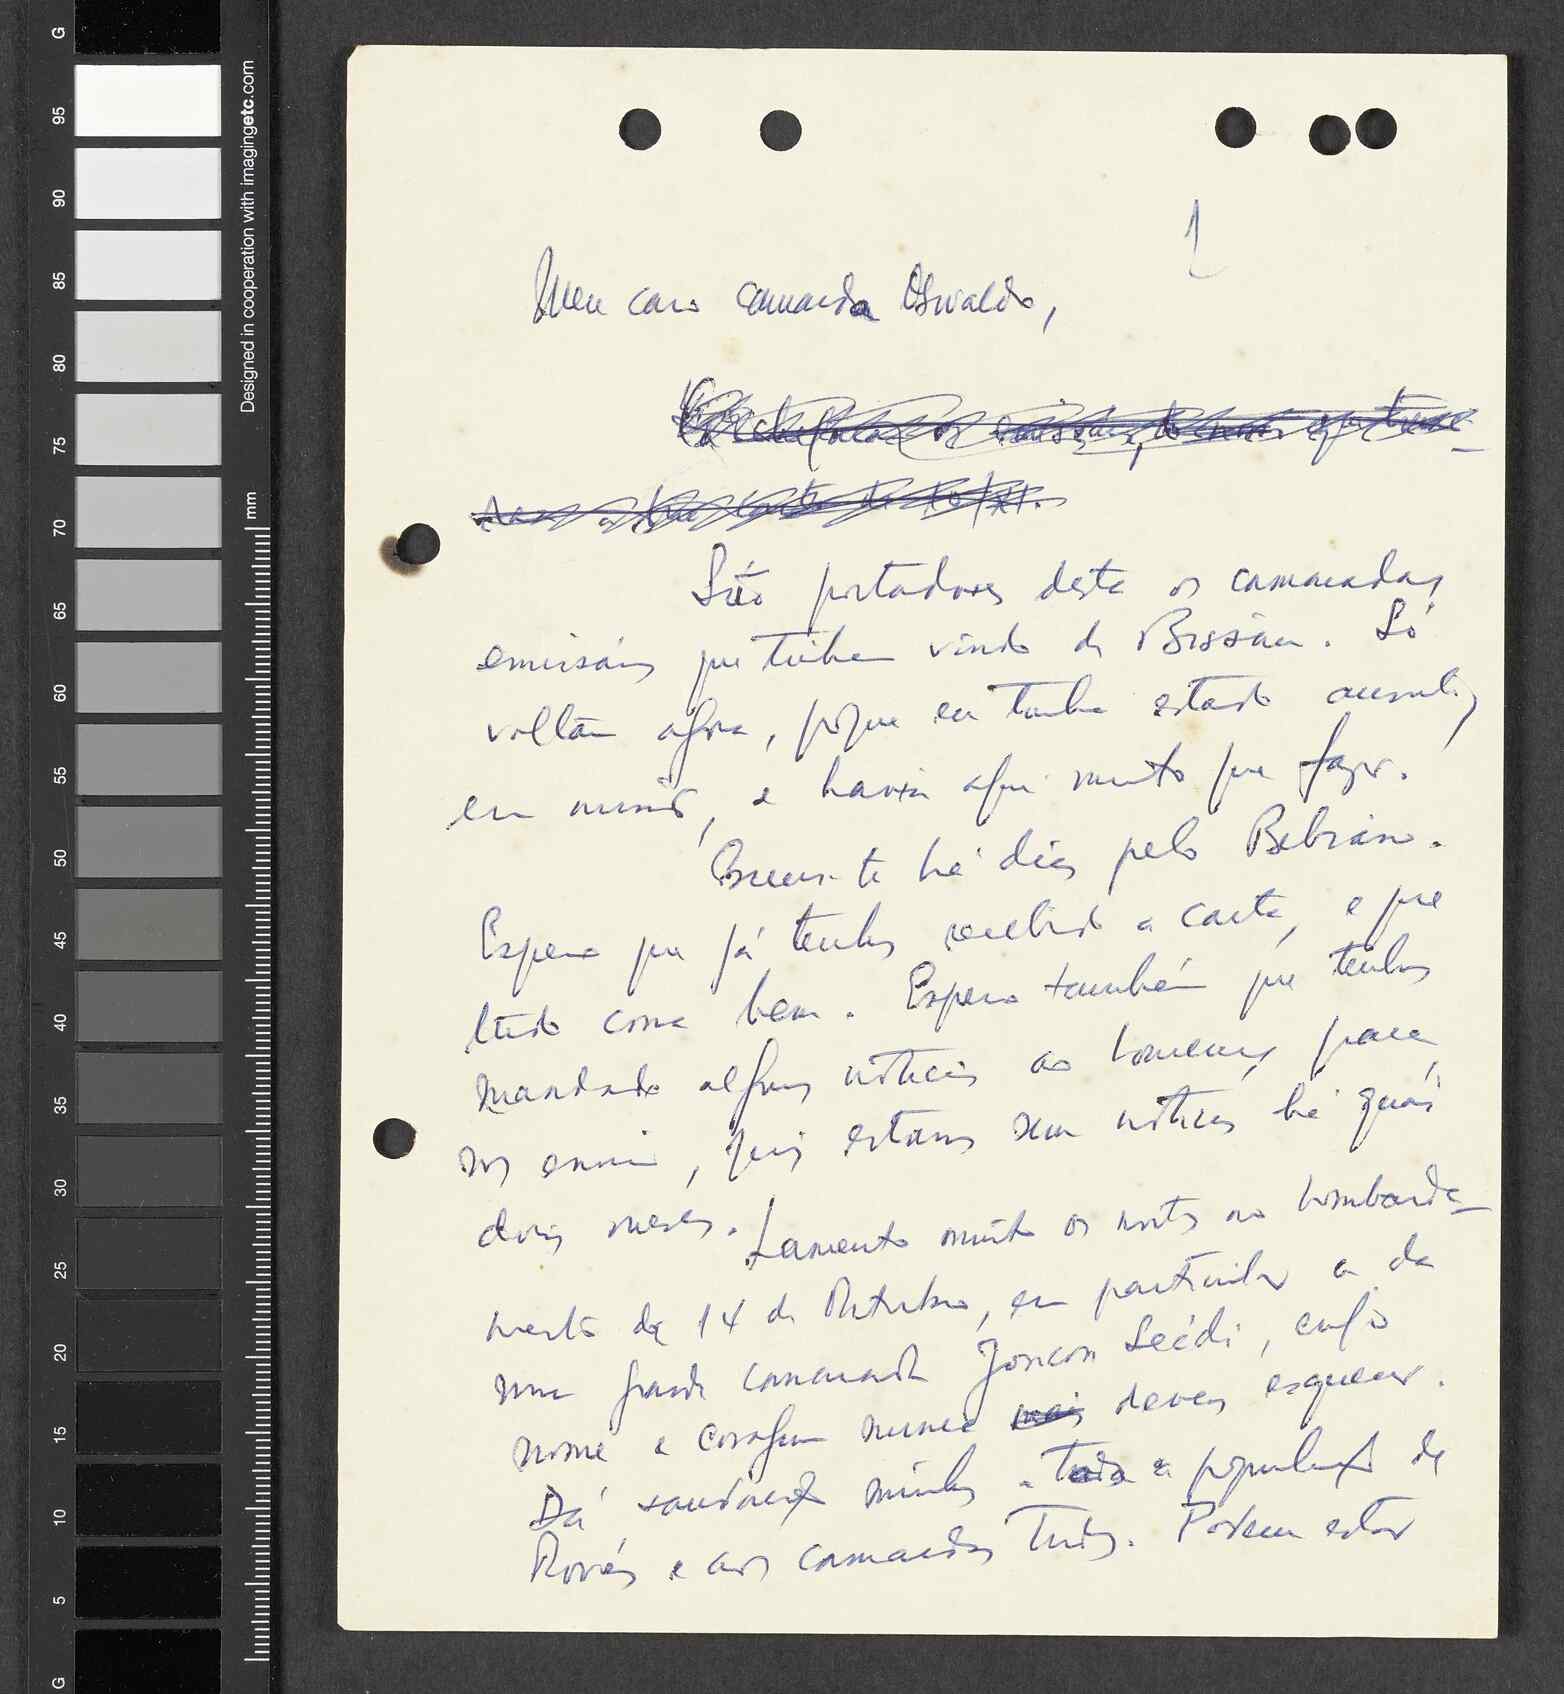 1
Meu caro camarada Osvaldo,
São portadores desta os camaradas
emissários que tinham vindo de Bissau. Só
voltam agora, porque eu tinha estado ausente,
em missão, e havia aqui muito que fazer.
Escrevi-te há dias pelo Bebiano.
Espero que já tenhas recebido a carta, e que
tudo corra bem. Espero também que tenhas
mandado algumas notícias ao Lourenço para
nos enviar, pois estamos sem notícias há quási
dois meses. Lamento muito as mortes no bombarde-
amento de 14 de Outubro, em particular a da
nossa grande camarada Joncon Seidi, cujo
nome e coragem nunca devem esquecer.
Dá saudações minhas a toda a população de
e aos camaradas todos. Podem estar
G
95
90
85
80
75
70
65
60
55
50
45
40
35
30
25
20
15
10
5
G
Designed in cooperation with imagingetc.com
mm